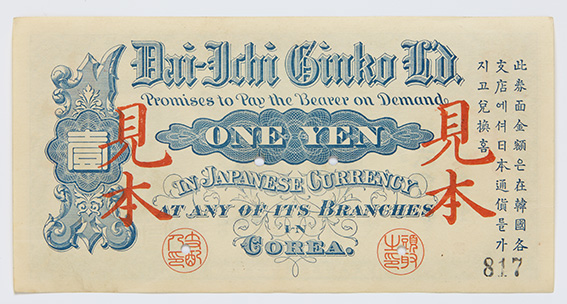 Dai-Ichi Ginko L'd.
Promises to Pay the Bearer on Demand
ONE YEN
IN JAPANESE CURRENCY
AT ANY OF ITS BRANCHES
IN
COREA.
壹
見本
見本
此券面金額은在韓國各
支店에셔日本通貨를가
지고兌換홈
817